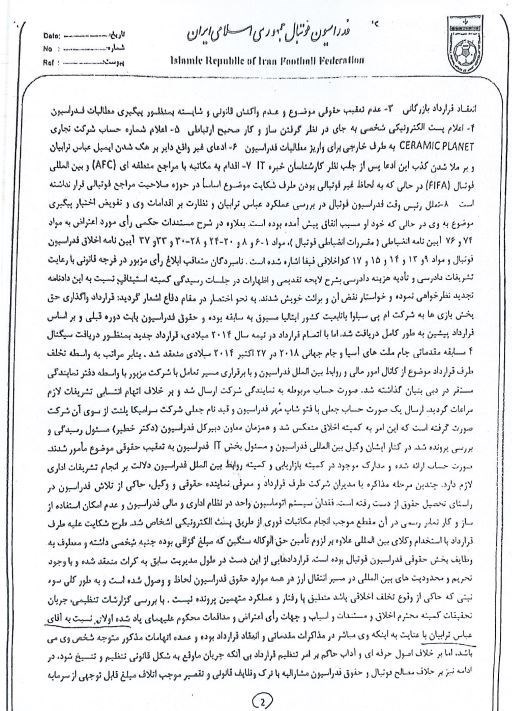 فدراسیون فوتبال جمهوری اسلامی ایران
Islamic Republic of Iran Football Federation
Date:
تاریخ:
No :
شماره:
Ref :
پیوست:
انعقاد قرارداد بازرگانی ۳- عدم تعقیب حقوقی موضوع و عدم واکنش قانونی و شایسته بمنظور پیگیری مطالبات فدراسیون
۴- اعلام پست الکترونیکی شخصی به جای در نظر گرفتن ساز و کار صحیح ارتباطی ۵- اعلام شماره حساب شرکت تجاری
CERAMIC PLANET به طرف خارجی برای واریز مطالبات فدراسیون ۶- ادعای غیر واقع دایر بر هک شدن ایمیل عباس ترابیان
و بر ملا شدن کذب این ادعا پس از جلب نظر کارشناسان خبره IT ۷- اقدام به مکاتبه با مراجع منطقه ای (AFC) و بین المللی
فوتبال (FIFA) در حالی که به لحاظ غیر فوتبالی بودن طرف شکایت موضوع اساساً در حوزه صلاحیت مراجع فوتبالی قرار نداشته
است ۸-تعلل رئیس وقت فدراسیون فوتبال در بررسی عملکرد عباس ترابیان و نظارت بر اقدامات وی و تفویض اختیار پیگیری
موضوع به وی در حالی که خود او مسبب اتفاق پیش آمده بوده است. بعلاوه در شرح مستندات حکمی رأی مورد اعتراض به مواد
۷۴ و ۷۶ آیین نامه انضباطی ( مقررات انضباطی فوتبال )، مواد ۱-۶ و ۸-۲۰-۲۴ و ۲۸-۳۰ و ۳۳ و ۳۷ آیین نامه اخلاق فدراسیون
فوتبال و مواد ۹ و ۱۳ و ۱۴ و ۱۵ و ۱۷ کداخلاقی فیفا اشاره شده است. نامبردگان متعاقب ابلاغ رأی مزبور در فرجه قانونی با رعایت
تشریفات دادرسی و تأدیه هزینه دادرسی بشرح لایحه تقدیمی و اظهارات در جلسات رسیدگی کمیته استیناف نسبت به این دادنامه
تجدید نظرخواهی نموده و خواستار نقض آن و برائت خویش شدند. به نحو اختصار در مقام دفاع اشعار گردید: قرارداد واگذاری حق
پخش بازی ها به شرکت ام پی سیلوا باتابعیت کشور ایتالیا مسبوق به سابقه بوده و حقوق فدراسیون بابت دوره قبلی و بر اساس
قرارداد پیشین به طور کامل دریافت شد. اما با اتمام قرارداد در نیمه سال ۲۰۱۴ میلادی، قرارداد جدید بمنظور دریافت سیگنال
۴ مسابقه مقدماتی جام ملت های آسیا و جام جهانی ۲۰۱۸ در ۲۷ اکتبر ۲۰۱۴ میلادی منعقد شد . بنابر مراتب به واسطه تخلف
طرف قرارداد موضوع از کانال امور مالی و روابط بین الملل فدراسیون و با برقراری مسیر تعامل با شرکت مزبور با واسطه دفتر نمایندگی
مستقر در دبی بنیان گذاشته شد. صورت حساب مربوطه به نمایندگی شرکت ارسال شد و بر خلاف اتهام انتسابی تشریفات لازم
مراعات گردید. ارسال یک صورت حساب جعلی با فتو شاپ مُهر فدراسیون و قید نام جعلی شرکت سرامیکا پلنت از سوی آن شرکت
صورت گرفته است که این امر به کمیته اخلاق منعکس شد و همزمان معاون دبیرکل فدراسیون (دکتر خطیر) مسئول رسیدگی و
بررسی پرونده شد. در کنار ایشان وکیل بین المللی فدراسیون و مسئول بخش IT فدراسیون به تعقیب حقوقی موضوع مأمور شدند.
صورت حساب ارائه شده و مدارک موجود در کمیته بازاریابی و کمیته روابط بین الملل فدراسیون دلالت بر انجام تشریفات اداری
لازم دارد. چندین مرحله مذاکره با مدیران شرکت طرف قرارداد و معرفی نماینده حقوقی و وکیل، حاکی از تلاش فدراسیون در
راستای تحصیل حقوق از دست رفته است. فقدان سیستم اتوماسیون واحد در نظام اداری و مالی فدراسیون و عدم امکان استفاده از
ساز و کار نمابر رسمی در آن مقطع موجب انجام مکاتبات فوری از طریق پست الکترونیکی اشخاص شد. طرح شکایت علیه طرف
قرارداد با استخدام وکلای بین المللی علاوه بر لزوم تأمین حق الوکاله سنگین که مبلغ گزافی بوده جنبه شخصی داشته و معطوف به
وظایف بخش حقوقی فدراسیون فوتبال بوده است. قراردادهایی از این دست در طول مدیریت سابق به کرات منعقد شده و با وجود
تحریم و محدودیت های بین المللی در مسیر انتقال ارز در همه موارد حقوق فدراسیون لحاظ و وصول شده است و به طور کلی سوء
نیتی که حاکی از وقوع تخلف اخلاقی باشد منطبق با رفتار و عملکرد متهمین پرونده نیست . با بررسی گزارشات تنظیمی، جریان
تحقیقات کمیته محترم اخلاق و مستندات و اسباب و جهات رأی اعتراض و مدافعات محکوم علیهمای یاد شده اولاً، نسبت به آقای
عباس ترابیان با عنایت به اینکه وی مباشر در مذاکرات مقدماتی و انعقاد قرارداد بوده و عمده اتهامات مذکور متوجه شخص وی می
باشد، اما بر خلاف اصول حرفه ای و آداب حاکم بر امر تنظیم قرارداد بی آنکه جریان ماوقع به شکل قانونی تنظیم و تنسیخ شود، در
ادامه نیز بر خلاف مصالح فوتبال و حقوق فدراسیون مشارالیه با ترک وظایف قانونی و تقصیر موجب اتلاف مبلغ قابل توجهی از سرمایه
2